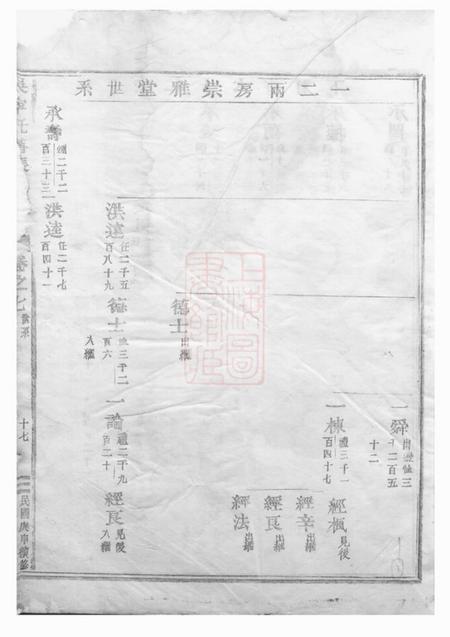 一二兩房崇雅堂世系
一舜
十二
一棟 禮三千一百四十七
經楓 見後
經辛 出繼
經良 出繼
經法 出繼
德士 出繼
洪逵 任二千五百八十九
德士 三千二百六 入繼
一論 禮二千九百二十
經良 見後 入繼
承壽 二千二百三十三
洪逵 任二千七百四十一
卷之七
世系
十七
民國庚申續修